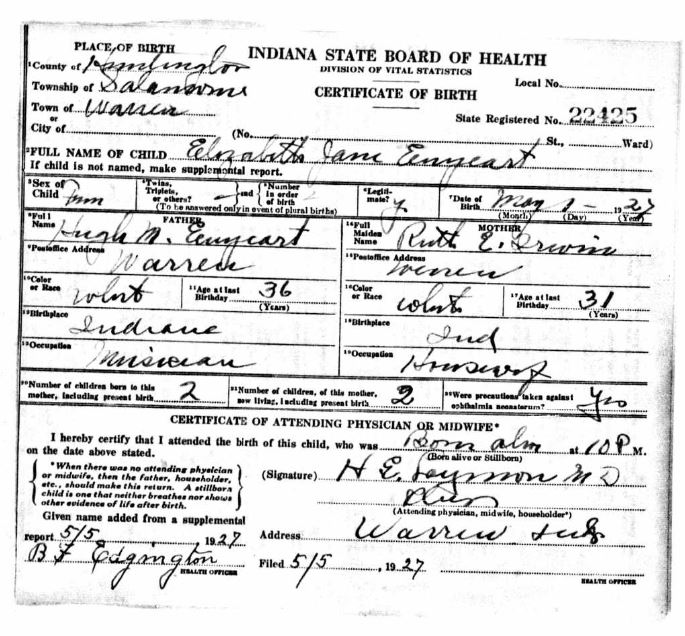 PLACE OF BIRTH
INDIANA STATE BOARD OF HEALTH
DIVISION OF VITAL STATISTICS
CERTIFICATE OF BIRTH
¹County of Huntington
Township of Salamonie
Town of Warren
or
City of
Local No.
State Registered No. 22425
(No. St., Ward)
²FULL NAME OF CHILD Elizabeth Jane Enyeart
If child is not named, make supplemental report.
³Sex of Child Fem
Twins, Triplets, or others? and Number in order of birth
(To be answered only in event of plural births)
Legitimate? y
Date of Birth May 1 - 1927
(Month) (Day) (Year)
FATHER
Full Name Hugh M. Enyeart
Postoffice Address Warren
Color or Race White
Age at last Birthday 36
(Years)
Birthplace Indiana
Occupation Musician
MOTHER
Full Maiden Name Ruth E. Irwin
Postoffice Address Warren
Color or Race White
Age at last Birthday 31
(Years)
Birthplace Ind
Occupation Housewife
Number of children born to this mother, including present birth 2
Number of children, of this mother, now living, including present birth 2
Were precautions taken against ophthalmia neonatorum? Yes
CERTIFICATE OF ATTENDING PHYSICIAN OR MIDWIFE*
I hereby certify that I attended the birth of this child, who was Born alive at 10 P M.
(Born alive or Stillborn)
on the date above stated.
*When there was no attending physician
or midwife, then the father, householder,
etc., should make this return. A stillborn
child is one that neither breathes nor shows
other evidence of life after birth.
(Signature) H E Laymon M D
(Attending physician, midwife, householder*)
Given name added from a supplemental
report 5/5, 1927
B F Edgington
HEALTH OFFICER
Address Warren Ind
Filed 5/5, 1927
HEALTH OFFICER